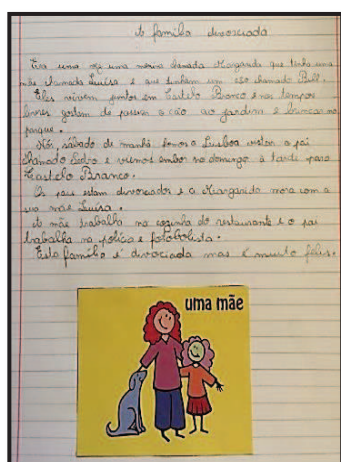 A família divorciada
Era uma vez uma menina chamada Margarida que tinha uma
mãe chamada Luísa e que tinham um cão chamado Bull.
Eles vivem juntos em Castelo Branco e nos tempos
livres gostam de passear o cão ao jardim e brincar no
parque.
Nós, sábado de manhã fomos a Lisboa visitar o pai
chamado Pedro e viemos embora no domingo à tarde para
Castelo Branco.
Os pais estam divorciados e a Margarida mora com a
sua mãe Luísa.
A mãe trabalha na cozinha do restaurante e o pai
trabalha na polícia e futebolista.
Esta família é divorciada mas é muito feliz.
uma mãe